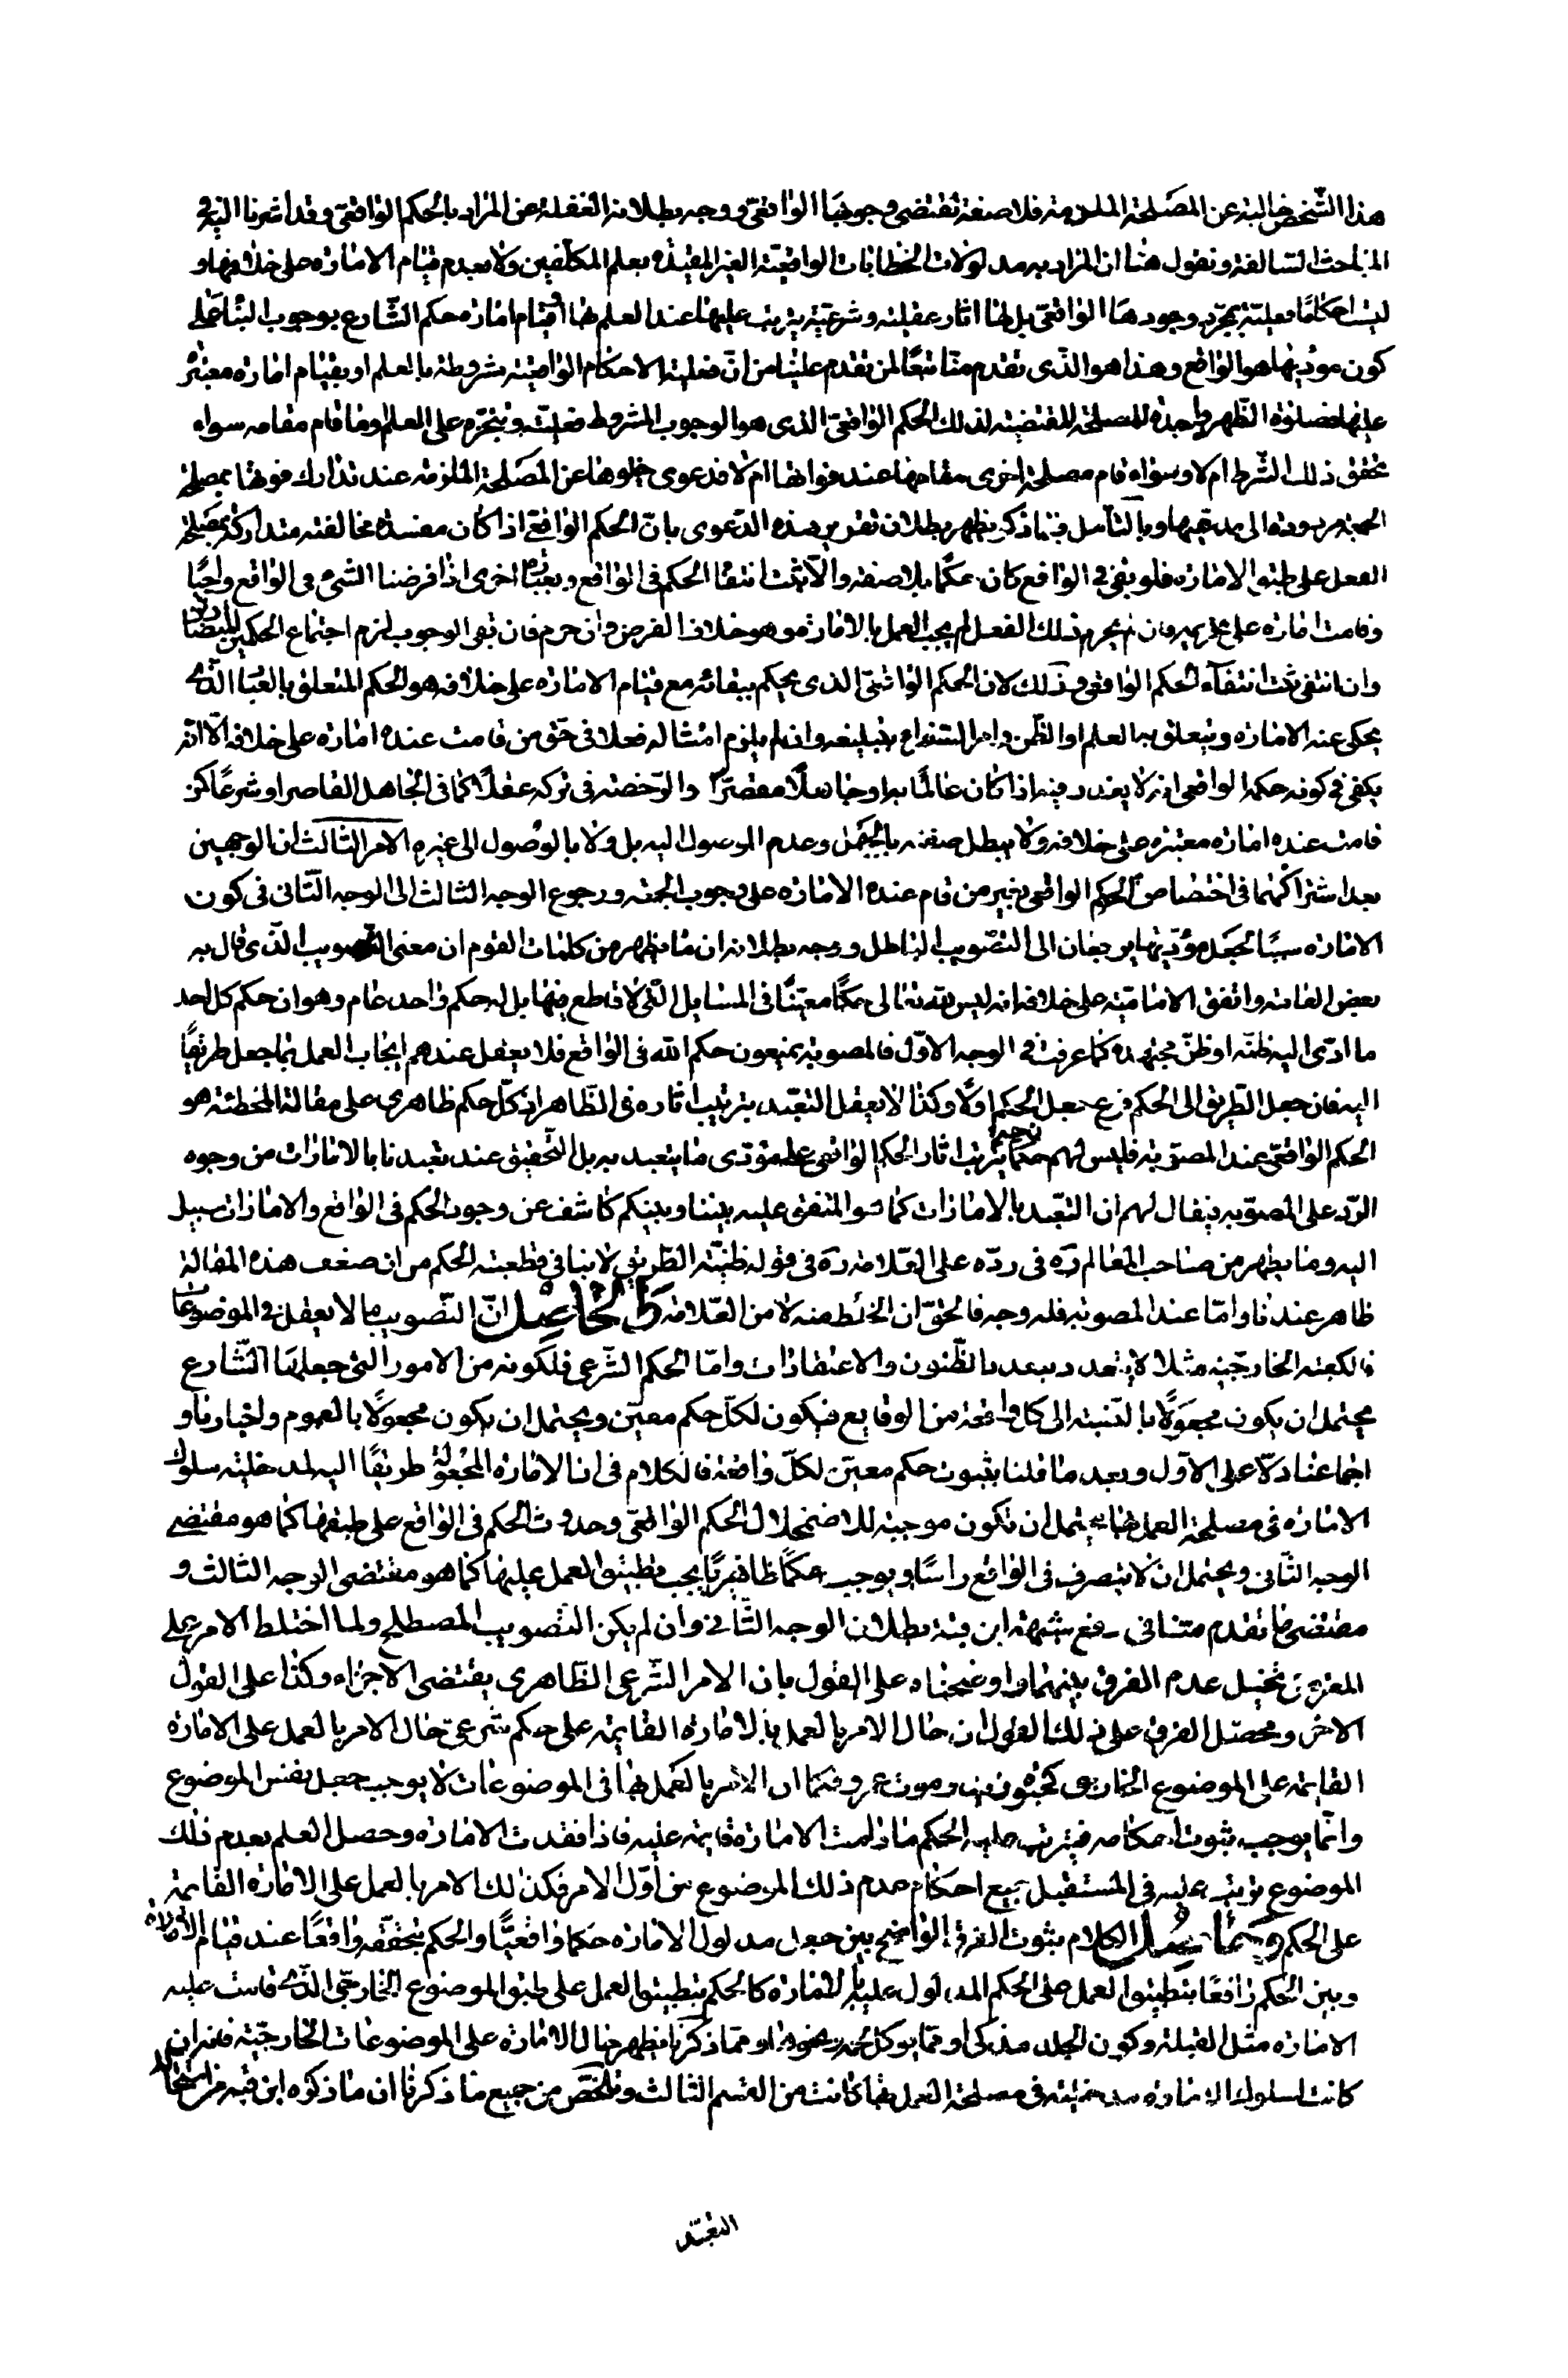 هذا الشّخص خالية عن المصلحة الملزمة فلا صفة تقتضى وجوبها الواقعىّ ووجه بطلانه الغفلة عن المراد بالحكم الواقعىّ وقد اشرنا اليه فى
المباحث السّالفة ونقول هنا ان المراد به مدلولات الخطابات الواقعيّة الغير المقيّدة بعلم المكلّفين ولا بعدم قيام الامارة على خلافها و
ليست احكامًا فعليّة بمجرّد وجودها الواقعىّ بل لها اثار عقليّة وشرعيّة يترتب عليها عند العلم بها او قيام امارة حكم الشّارع بوجوب البناء على
كون مؤديها هو الواقع وهذا هو الّذى تقدم منّا تبعًا لمن تقدم علينا من انّ فعلية الاحكام الواقعيّة مشروطة بالعلم او بقيام امارة معتبرة
عليها فصلوة الظّهر واجدة للمصلحة المقتضية لذلك الحكم الواقعىّ الذى هو الوجوب المشروط فعليّته وتنجّزه على العلم وما قام مقامه سواء
تحقق ذلك الشّرط ام لا وسواء قام مصلحة اخرى مقامها عند فواتها ام لا فدعوى خلوها عن المصلحة الملزمة عند تدارك فوتها بمصلحة
الجمعة مردودة الى مدعيها وبالتأمل فيما ذكر يظهر بطلان تقرير هذه الدّعوى بانّ الحكم الواقعىّ اذا كان مفسدة مخالفته متداركة بمصلحة
الفعل على طبق الامارة فلو بقى فى الواقع كان حكمًا بلا صفة والّا ثبت انتفاء الحكم فى الواقع وبعبارة اخرى اذا فرضنا الشىء فى الواقع واجبًا
وقامت امارة على تحريمه فان لم يحرم ذلك الفعل لم يجب العمل بالامارة وهو خلاف الفرض وان حرم فان بقى الوجوب لزم اجتماع الحكمين المتضادين
وان انتفى ثبت انتفاء الحكم الواقعى وذلك لان الحكم الواقعىّ الذى يحكم ببقائه مع قيام الامارة على خلافه هو الحكم المتعلق بالعباد الّذى
يحكى عنه الامارة ويتعلق به العلم او الظّن وامر السّفراء بتبليغه وان لم يلزم امتثاله فعلا فى حق من قامت عنده امارة على خلافه الّا انّه
يكفى فى كونه حكمه الواقعى انه لا يعذر فيه اذا كان عالمًا به او جاهلًا مقصّرًا والرّخصة فى تركه عقلًا كما فى الجاهل القاصر او شرعًا كمن
قامت عنده امارة معتبرة على خلافه ولا يبطل صفته بالجهل وعدم الوصول اليه بل ولا بالوصول الى غيره الامر الثّالث ان الوجهين
بعد اشتراكهما فى اختصاص الحكم الواقعى بغير من قام عنده الامارة على وجوب الجمعة ورجوع الوجه الثالث الى الوجه الثّانى فى كون
الامارة سببًا لجعل مؤدّيها يرجعان الى التصويب الباطل ووجه بطلانه ان ما يظهر من كلمات القوم ان معنى التصويب الّذى قال به
بعض العامّة واتفق الاماميّة على خلافه انه ليس للّه تعالى حكمًا معيّنًا فى المسائل الّتى لا قاطع فيها بل له حكم واحد عام وهو ان حكم كل احد
ما ادّى اليه ظنّه او ظنّ مجتهده كما عرفت فى الوجه الاوّل فالمصوبة يمنعون حكم الله فى الواقع فلا يعقل عندهم ايجاب العمل بما جعل طريقًا
اليه فان جعل الطّريق الى الحكم فرع جعل الحكم اولًا وكذا لا يعقل التعبّد بترتيب اثاره فى الظّاهر اذ كلّ حكم ظاهرى على مقالة المخطئة هو
الحكم الواقعىّ عند المصوّبة فليس لهم حكما يرتب اثار الحكم الواقعى على مؤدى ما يتعبد به بل التّحقيق عند تعبدنا بالامارات من وجوه
الرّد على المصوّبة فيقال لهم ان التعبّد بالامارات كما هو المتفق عليه بيننا وبينكم كاشف عن وجود الحكم فى الواقع والامارات سبيل
اليه وما يظهر من صاحب المعالم ره فى ردّه على العّلامة ره فى قوله ظنيّة الطّريق لا ينافى قطعيّة الحكم من ان ضعف هذه المقالة
ظاهر عندنا وامّا عند المصوبة فله وجه فالحقّ ان الخلط منه لا من العّلامة والحاصل انّ التّصويب ما لا يعقل فى الموضوعات
فالكعبة الخارجيّة مثلا لا يتعدد بتعدد الظّنون والاعتقادات وامّا الحكم الشّرعى فلكونه من الامور الّتى جعلها الشّارع
يحتمل ان يكون مجعولًا بالنّسبة الى كل واقعة من الوقايع فيكون لكلّ حكم معيّن ويحتمل ان يكون مجعولًا بالعموم واخبارنا و
اجماعنا دلّا على الاوّل وبعد ما قلنا بثبوت حكم معيّن لكلّ واقعة فالكلام فى ان الامارة المجعولة طريقًا اليه لمدخلية سلوك
الامارة فى مصلحة العمل بها يحتمل ان تكون موجبة للاضمحلال الحكم الواقعىّ وحدوث الحكم فى الواقع على طبقها كما هو مقتضى
الوجه الثّانى ويحتمل ان لا يتصرف فى الواقع راسًا ويوجب حكمًا ظاهريًا يجب تطبيق العمل عليها كما هو مقتضى الوجه الثالث و
مقتضى ما تقدم منّا فى رفع شبهة ابن قبة بطلان الوجه الثّانى وان لم يكن التّصويب المصطلح ولما اختلط الامر على
المعترض تخيل عدم الفرق بينهما واوضحناه على القول بان الامر الشّرعى الظّاهرى يقتضى الاجزاء وكذا على القول
الاخر ومحصّل الفرق على ذلك القول ان حال الامر بالعمل بالامارة القايمة على حكم شرعىّ حال الامر بالعمل على الامارة
القايمة على الموضوع الخارجى كحيوة زيد وموت عمرو فكما ان الامر بالعمل بها فى الموضوعات لا يوجب جعل نفس الموضوع
وانّما يوجب ثبوت احكامه فيترتب عليه الحكم ما دامت الامارة قايمة عليه فاذا فقدت الامارة وحصل العلم بعدم ذلك
الموضوع ترتب عليه فى المستقبل جميع احكام عدم ذلك الموضوع من اوّل الامر فكذلك الامر بالعمل على الامارة القايمة
على الحكم وحاصل الكلام ثبوت الفرق الواضح بين جعل مدلول الامارة حكما واقعيًّا والحكم بتحقّقه واقعًا عند قيام الامارة
وبين الحكم واقعًا بتطبيق العمل على الحكم المدلول عليه بالامارة كالحكم بتطبيق العمل على طبق الموضوع الخارجىّ الّذى قامت عليه
الامارة مثل القبلة وكون الجلد مذكى او ممّا يوكل لحمه ونحوها وممّا ذكرنا يظهر حال الامارة على الموضوعات الخارجيّة فانه ان
كانت لسلوك الامارة مدخلية فى مصلحة العمل بها كانت من القسم الثالث وتلخّص من جميع ما ذكرنا ان ما ذكره ابن قبه من استحالة
التعبّد